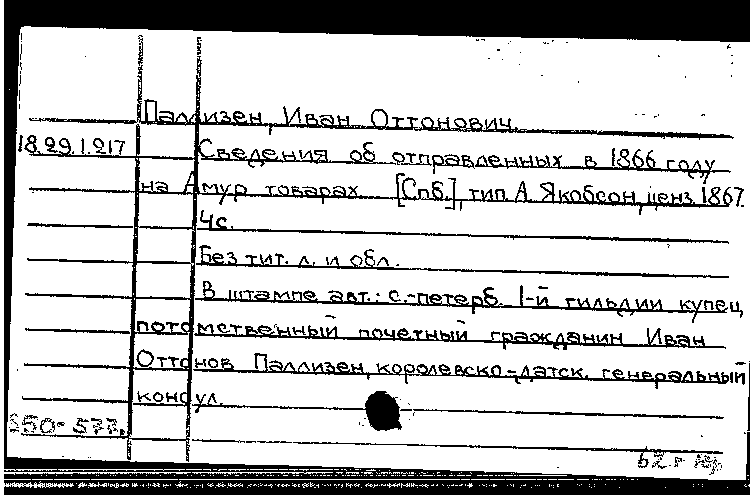 Паллизен, Иван Оттонович.
18.29.1.217
Сведения об отправленных в 1866 году
на Амур товарах. [Спб.], тип. А. Якобсон, ценз. 1867.
4с.
Без тит. л. и обл.
В штампе авт.: с.-петерб. 1-й гильдии купец,
потомственный почетный гражданин Иван
Оттонов Паллизен, королевско-датск. генеральный
консул.
550-577.
62 г